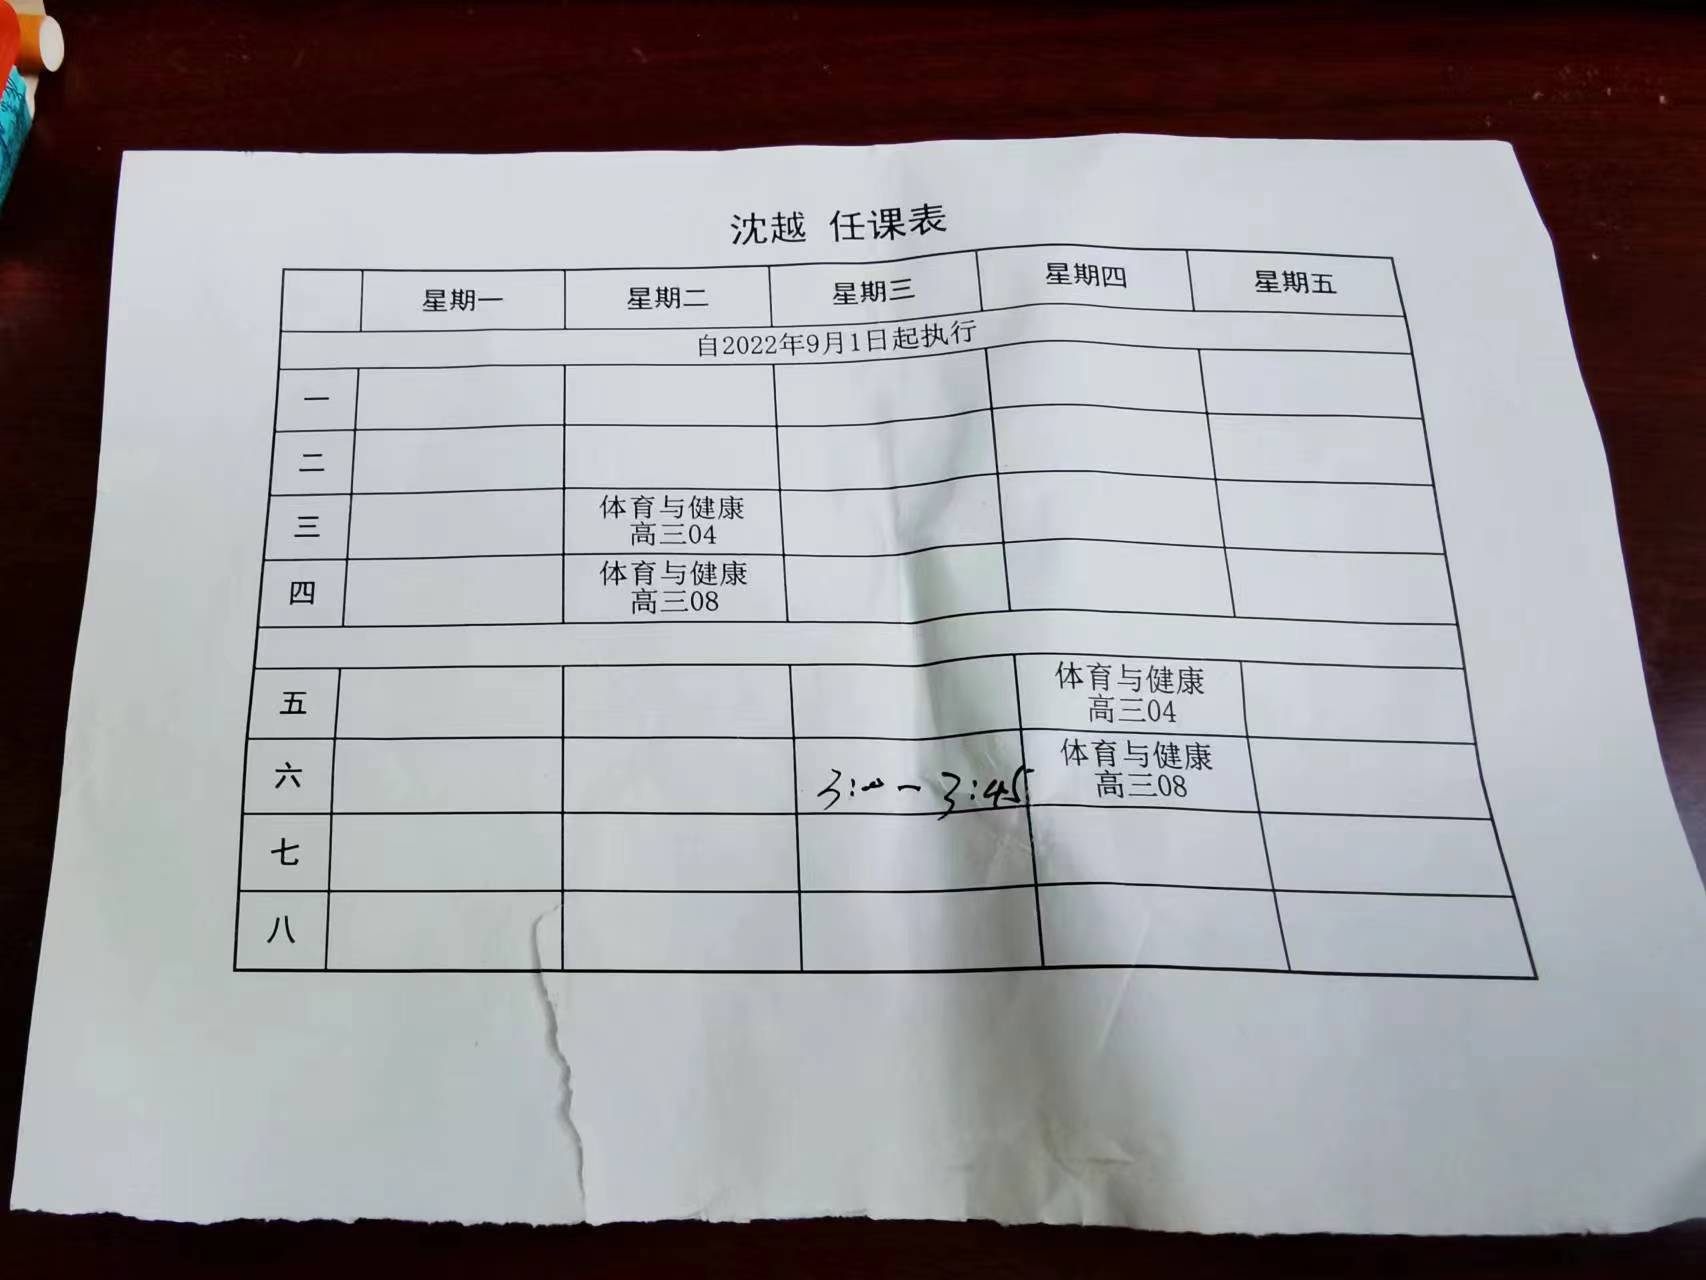 沈越 任课表
星期一 星期二 星期三 星期四 星期五
自2022年9月1日起执行
一
二
三 体育与健康
高三04
四 体育与健康
高三08
五 体育与健康
高三04
六 3:00-3:45 体育与健康
高三08
七
八